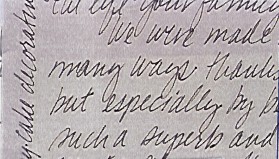 the eye your
We were made
many ways thank
but especially by
such a superb and
decorative